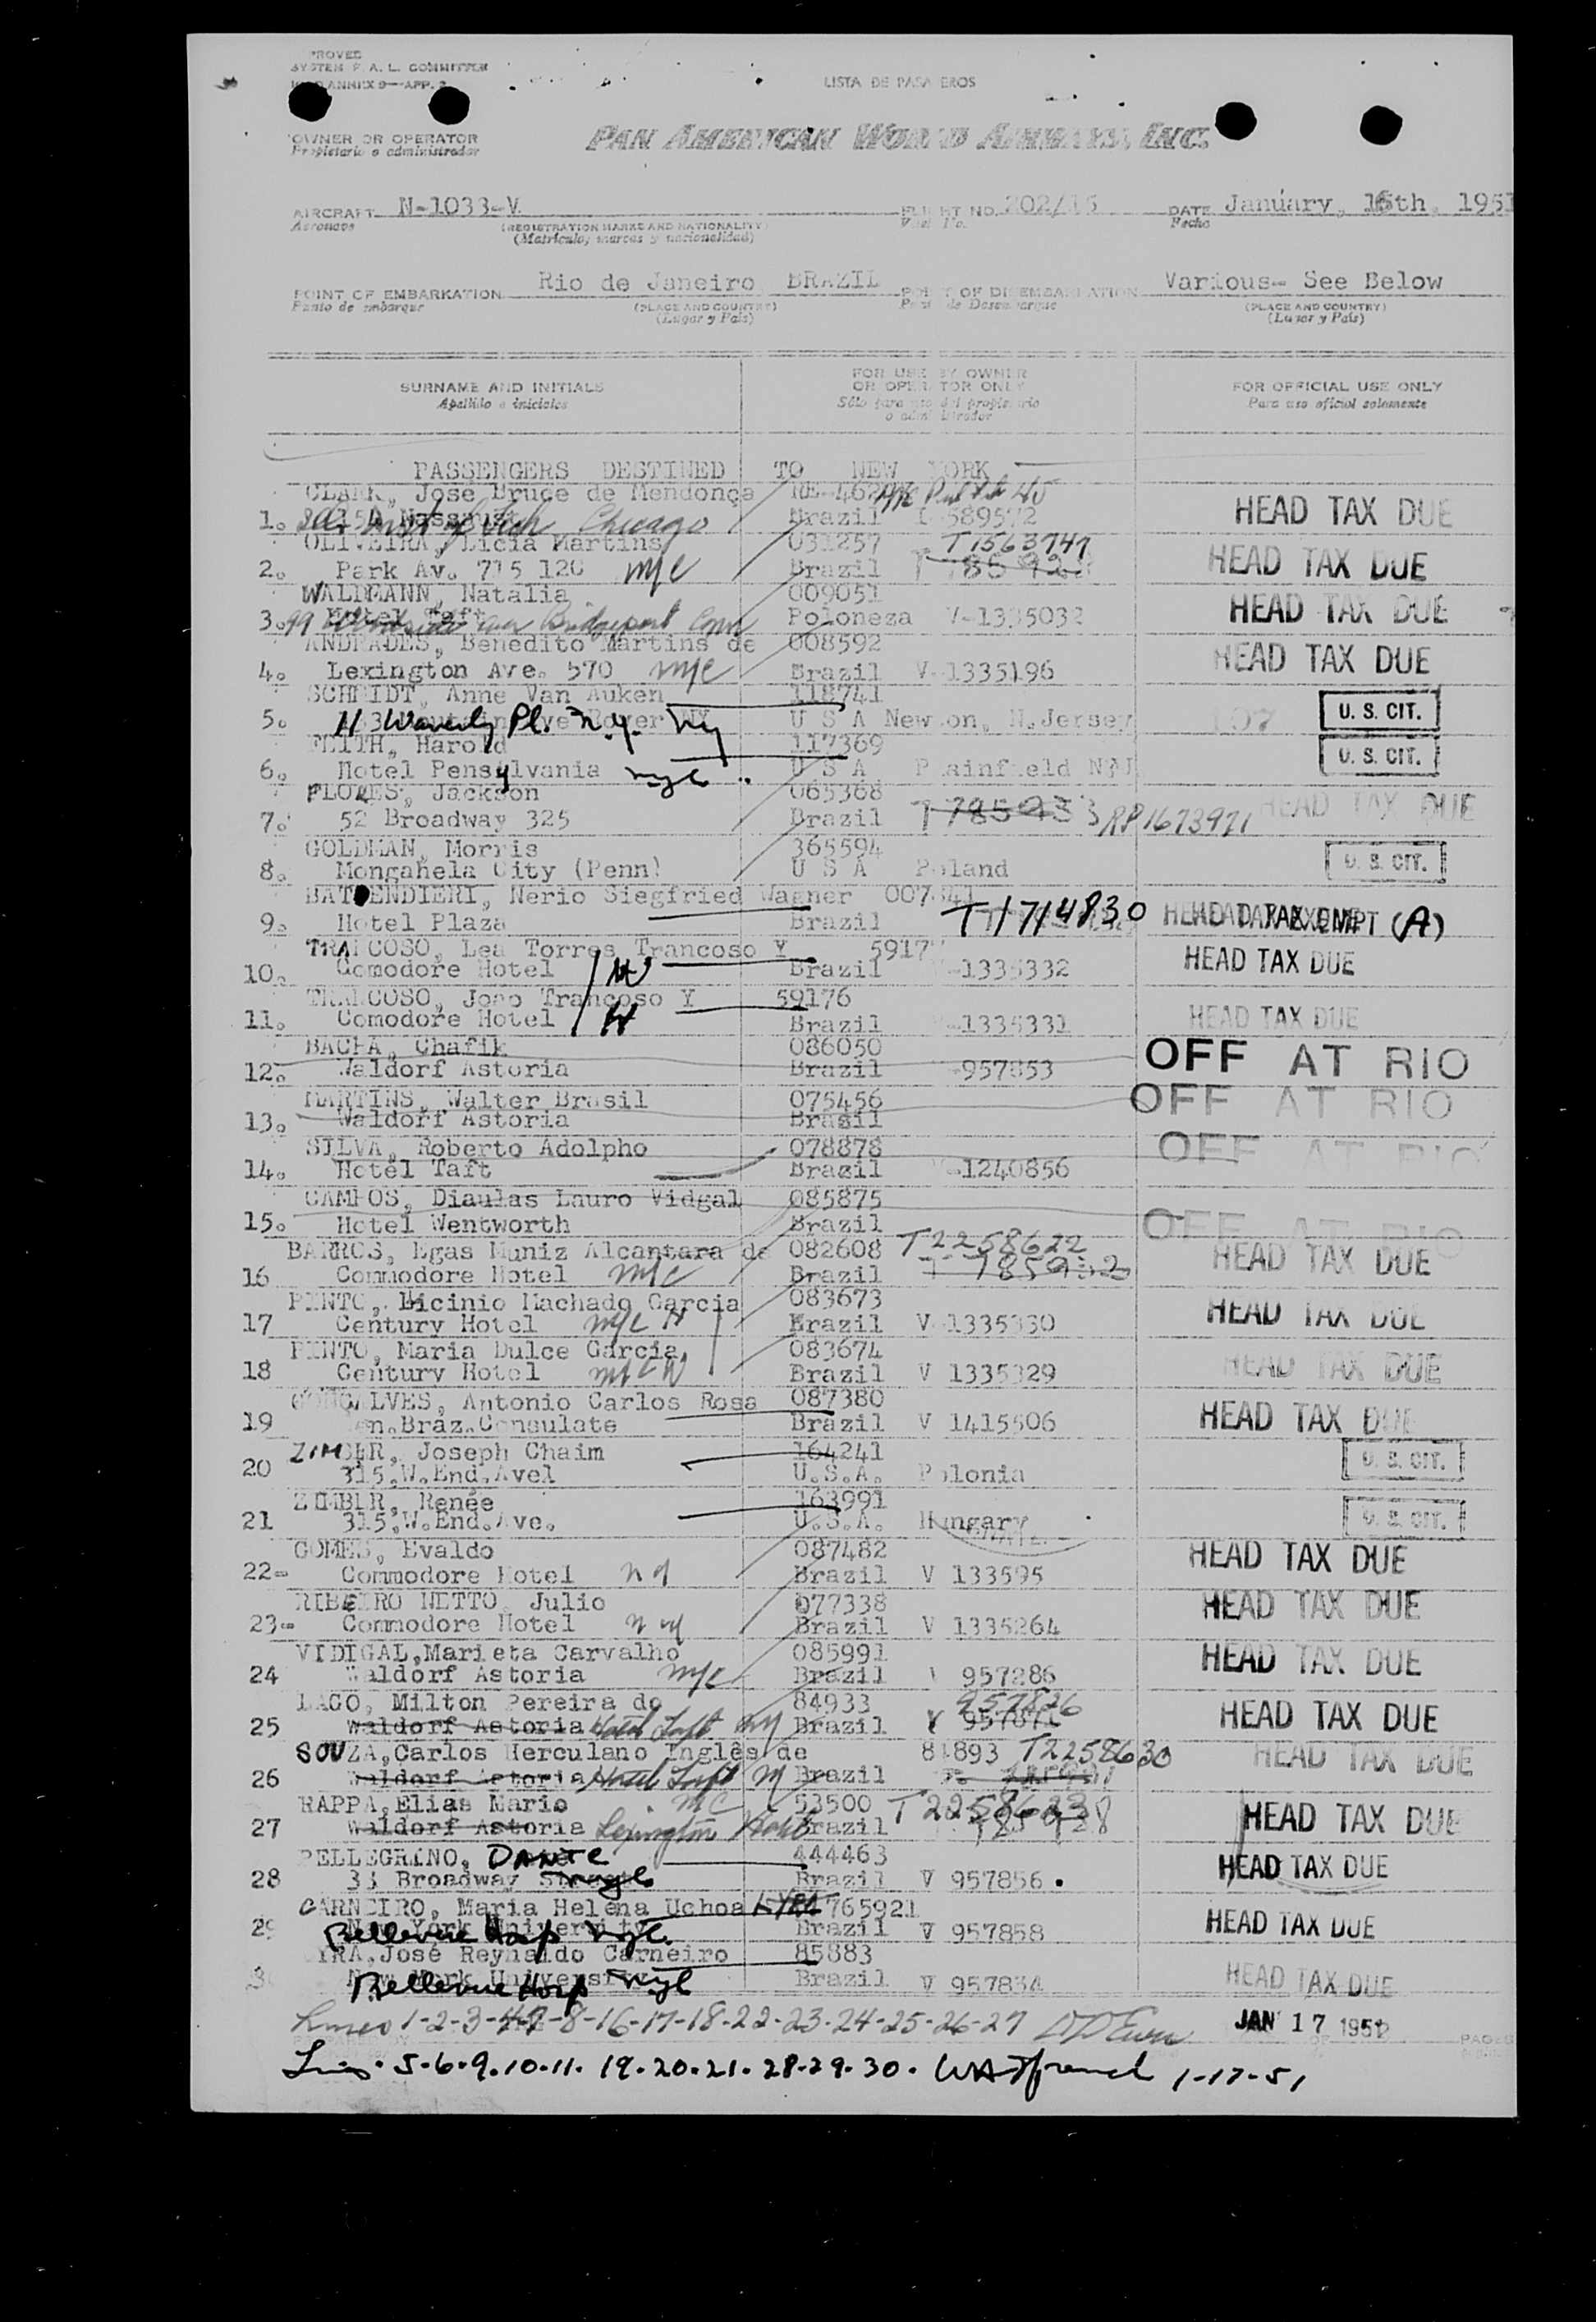 PROVED
SYSTEM F.A.L. COMMITTEE
ANNEX 9—APP. 2
LISTA DE PASA EROS
OWNER OR OPERATOR
Propietario o administrador
PAN AMERICAN WORLD AIRWAYS, INC.
AIRCRAFT N-1033-V FLIGHT NO. 202/15 DATE January, 16th, 1951
Aeronave (REGISTRATION MARKS AND NATIONALITY) Vuelo No. Fecha
(Matricula, marcas y nacionalidad)
POINT OF EMBARKATION Rio de Janeiro, BRAZIL POINT OF DISEMBARKATION Various- See Below
Punto de embarque (PLACE AND COUNTRY) Punto de Desembarque (PLACE AND COUNTRY)
(Lugar y País) (Lugar y País)
SURNAME AND INITIALS FOR USE BY OWNER OR OPERATOR ONLY FOR OFFICIAL USE ONLY
Apellido e iniciales Sólo para uso del propietario o administrador Para uso oficial solamente
PASSENGERS DESTINED TO NEW YORK
CLARK, José Bruce de Mendonça RE-462
1. Chicago Brazil HEAD TAX DUE
OLIVEIRA, Licia Martins 031257 T1563747
2. Park Av. 715 12C nyc Brazil HEAD TAX DUE
WALDMANN, Natalia 009051
3. Hotel Taft 99 Bridgeport Conn Poloneza V-1335032 HEAD TAX DUE
ANDRADES, Benedito Martins de 008592
4. Lexington Ave. 570 nyc Brazil V-1335196 HEAD TAX DUE
SCHMIDT, Anne Van Auken 118741
5. 11 Waverly Pl. N.Y. NY U S A Newton, N.Jersey U. S. CIT.
FEITH, Harold 117369
6. Hotel Pensylvania nyc U S A Plainfield NJ U. S. CIT.
FLORES, Jackson 065368
7. 52 Broadway 325 Brazil T 785933 RP1673971 HEAD TAX DUE
GOLDMAN, Morris 365594
8. Mongahela City (Penn) U S A Poland U. S. CIT.
BATENDIERI, Nerio Siegfried Wagner 007841
9. Hotel Plaza Brazil T1714830 HEAD TAX EXEMPT (A)
TRANCOSO, Lea Torres Trancoso Y 59177
10. Comodore Hotel W Brazil V-1335332 HEAD TAX DUE
TRANCOSO, Joao Trancoso Y 59176
11. Comodore Hotel H Brazil V-1335331 HEAD TAX DUE
BACHA, Chafik 086050
12. Waldorf Astoria Brazil -957853 OFF AT RIO
MARTINS, Walter Brasil 075456
13. Waldorf Astoria Brasil OFF AT RIO
SILVA, Roberto Adolpho 078878
14. Hotel Taft Brazil V-1240856 OFF AT RIO
CAMPOS, Diaulas Lauro Vidgal 085875
15. Hotel Wentworth Brazil OFF AT RIO
BARROS, Egas Muniz Alcantara de 082608 T2258622
16 Commodore Hotel nyc Brazil HEAD TAX DUE
PINTO, Licinio Machado Garcia 083673
17 Century Hotel nyc H Brazil V 1335330 HEAD TAX DUE
PINTO, Maria Dulce Garcia 083674
18 Century Hotel nyc W Brazil V 1335329 HEAD TAX DUE
GONÇALVES, Antonio Carlos Rosa 087380
19 Gen.Braz.Consulate Brazil V 1415506 HEAD TAX DUE
ZIMBLR, Joseph Chaim 164241
20 315.W.End.Avel U.S.A. Polonia U. S. CIT.
ZIMBLR, Renée 163991
21 315.W.End.Ave. U.S.A. Hungary U. S. CIT.
GOMES, Evaldo 087482
22- Commodore Hotel ny Brazil V 133595 HEAD TAX DUE
RIBEIRO NETTO, Julio 077338
23- Commodore Hotel ny Brazil V 1335264 HEAD TAX DUE
VIDIGAL,Marieta Carvalho 085991
24 Waldorf Astoria nyc Brazil V 957286 HEAD TAX DUE
LAGO, Milton Pereira do 84933 957876
25 Waldorf Astoria Hotel Taft NY Brazil V HEAD TAX DUE
SOUZA,Carlos Herculano Inglês de 81893 T2258630
26 Waldorf Astoria Hotel Taft Brazil HEAD TAX DUE
RAPPA,Elias Mario 53500
27 Waldorf Astoria Lexington Hotel Brazil HEAD TAX DUE
PELLEGRINO, DANTE 444463
28 33 Broadway Street nyc Brazil V 957856 HEAD TAX DUE
CARNEIRO, Maria Helena Uchoa LYRA 765921
29 New York University Bellevue Hosp nyc Brazil V 957858 HEAD TAX DUE
LYRA,José Reynaldo Carneiro 85883
30 New York University Bellevue Hosp nyc Brazil V 957834 HEAD TAX DUE
Lines 1-2-3-4-7-8-16-17-18-22-23-24-25-26-27 JAN 17 1951 PAGES
Lines. 5-6-9.10-11. 19-20-21-28-29-30. 1-17-51